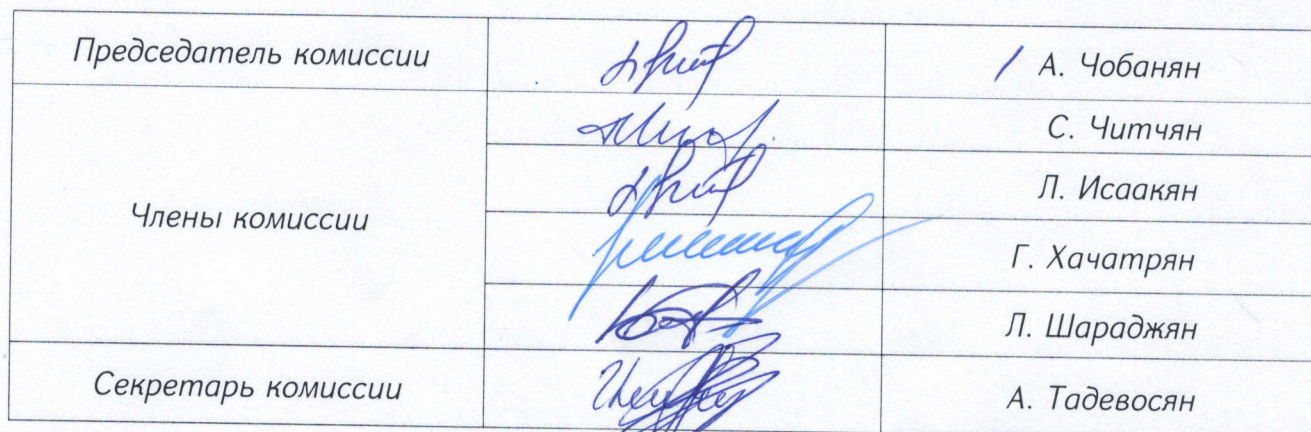 Председатель комиссии
/ А. Чобанян
С. Читчян
Члены комиссии
Л. Исаакян
Г. Хачатрян
Л. Шараджян
Секретарь комиссии
А. Тадевосян